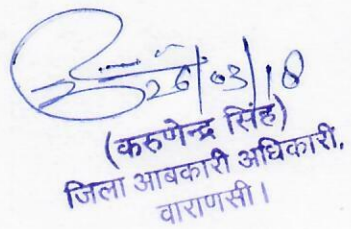 26/03/18
(करुणेन्द्र सिंह)
जिला आबकारी अधिकारी,
वाराणसी।